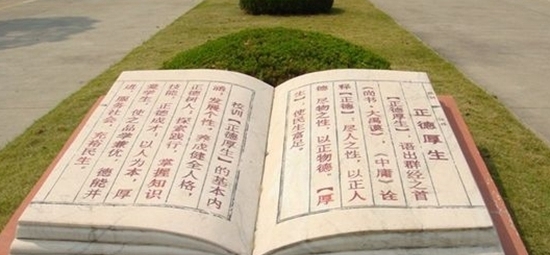 正德厚生
【正德厚生】，语出群经之首
《尚书·大禹谟》，《中庸》诠
释【正德】：尽人之性，以正人
德，尽物之性，以正物德。【厚
生】，使民生富足。
校训【正德厚生】的基本内
涵：发展个性，养成健全人格，
正德树人；探索践行，掌握知识
技能，正德成才；以人为本，厚
爱学生，使品学兼优，德能并
进，服务社会，充裕民生。